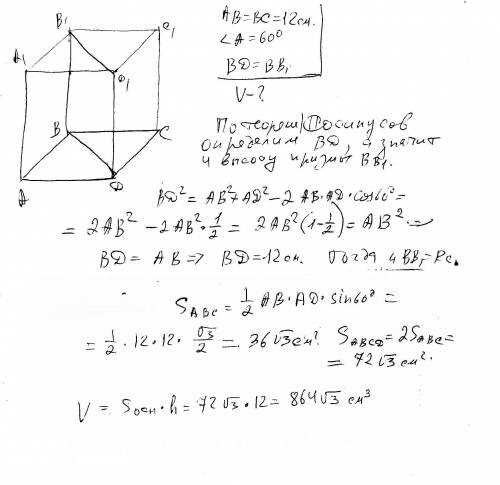 B₁
C₁
A₁
D₁
B
C
A
D
AB=BC=12см.
∠A=60°
BD=BB₁
V-?
По теореме косинусов
определим BD, а значит
и высоту призмы BB₁.
BD²=AB²+AD²-2 AB·AD·cos60°=
= 2AB² - 2AB²·1/2 = 2AB²(1-1/2)=AB²·=>
BD = AB => BD=12см. тогда и BB₁=
S ABC = 1/2 AB·AD·sin60° =
= 1/2 · 12·12· √3/2 = 36√3 см². S ABCD = 2S ABC =
= 72√3 см².
V = Sосн·h = 72√3·12 = 864√3 см³